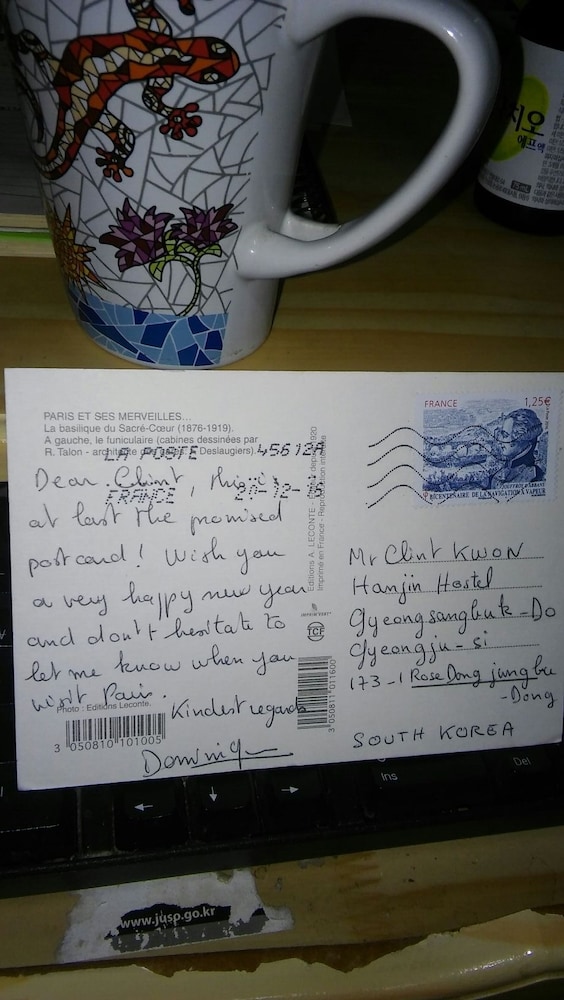 지오
에프액
75mL
PARIS ET SES MERVEILLES...
La basilique du Sacré-Cœur (1876-1919).
A gauche, le funiculaire (cabines dessinées par
R. Talon - architecte Deslaugiers).
LA POSTE 45612A
FRANCE 20-12-16
FRANCE 1,25€
BICENTENAIRE DE LA NAVIGATION À VAPEUR
Dear Clint, this is
at last the promised
postcard! Wish you
a very happy new year
and don't hesitate to
let me know when you
visit Paris.
Kindest regards
Dominique
Photo : Editions Leconte.
3 050810 101005
Editions A. LECONTE - depuis 1920
Imprimé en France - Reproduction interdite
TCF
3 059811 011600
Mr Clint KWON
Hanjin Hostel
Gyeongsangbuk-Do
Gyeongju-si
173-1 Rose Dong jungbu
-Dong
SOUTH KOREA
Ins
Del
←
↓
→
www.jusp.go.kr